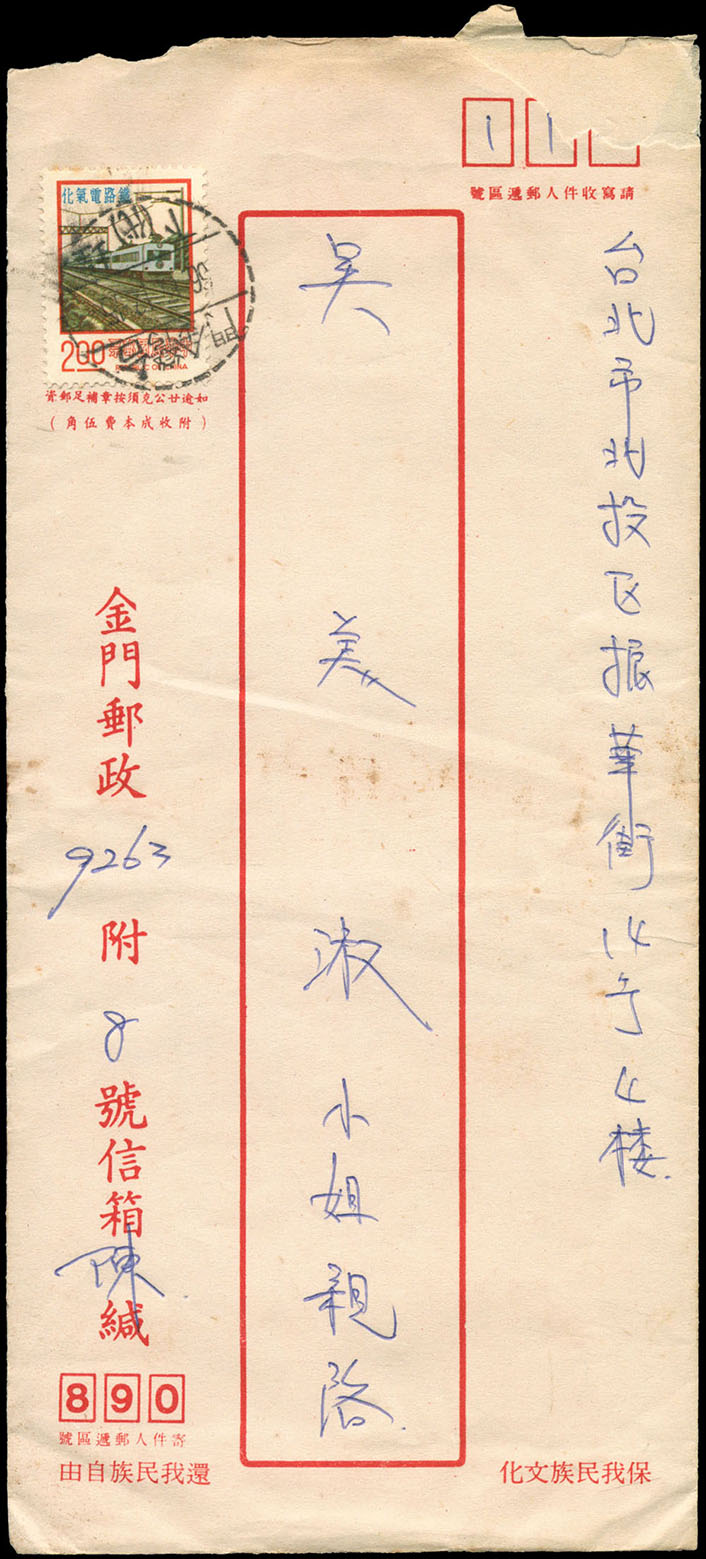 11
請寫收件人郵遞區號
台北市北投区振華街14号4楼
吳美淑小姐親啟
鐵路電氣化
2.00
REPUBLIC OF CHINA
如逾廿公克須按章補足郵資
(附收成本費伍角)
金門郵政9263附8號信箱陳緘
890
寄件人郵遞區號
還我民族自由
保我民族文化